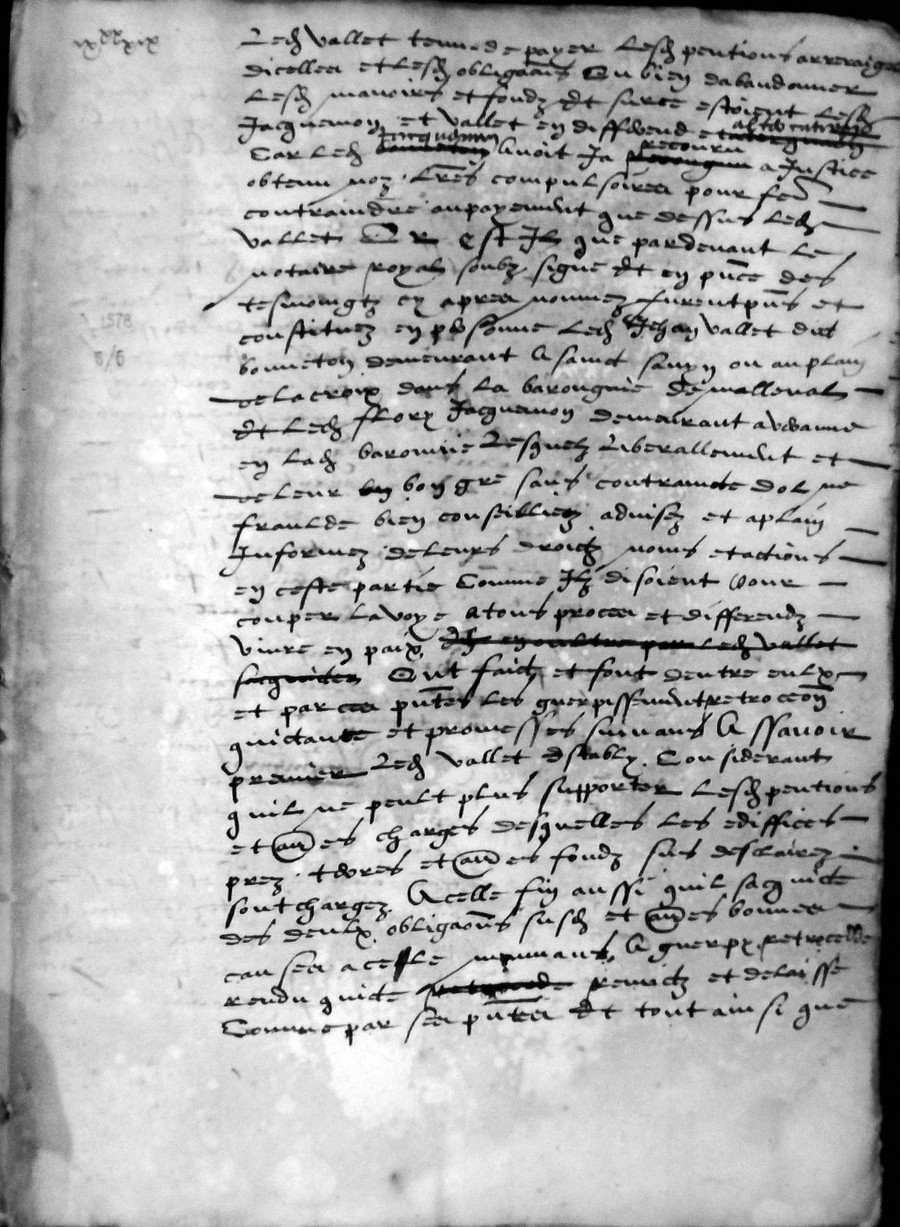 ixxxxix
Led vallet tenu de payer lesd pentions arreraiges
dicelles et lesd obligaons Ou bien dabandonner
lesd manoirs et fondz Et surce estoient lesd
Jacquemon et vallet en different et altercation
Car led Jacquemon Avoit Ja recouru a Justice
obtenu noz lres compulsoires pour fe
contraindre aupayement que dessus led
vallet Or Est Il que pardevant le
notaire royal soubz signe Et en pnce des
tesmoingtz cy apres nommez furent pns et
constituez en personne led Jehan vallet dict
bonneton demeurant A sainct ou au plain
de la croix dans la baronnie de malleval
Et led flory Jacquemon demeurant a
en lad baronnie Lesquelz Liberallement et
de leur bon gre sans contraincte dol ne
fraulde bien conseilliez advisez et aplain
Informez de leurs droictz noms et actions
en ceste partie Comme Ilz disoient pour
couper la voye atous proces et differendz
vivre en paix Et en oultre par led vallet
sacquicter Ont faict et font dentre eulx
et par ces pntes les guerpissement retroceon
quictance et promesses suivans Assavoir
premier Led vallet establý Considerant
quil ne peult plus supporter lesd pentions
et aues charges desquelles les ediffices
prez terres et aues fondz sus desclairez
sont chargez Acelle fin aussi quil sacquicte
des deulx obligaons susd et aues bonnes
causes a ce le mouvans A guerpy retrocelle
rendu quicte remictz et delaisse
Comme par ses pntes Et tout ainsi que
1578
5/6